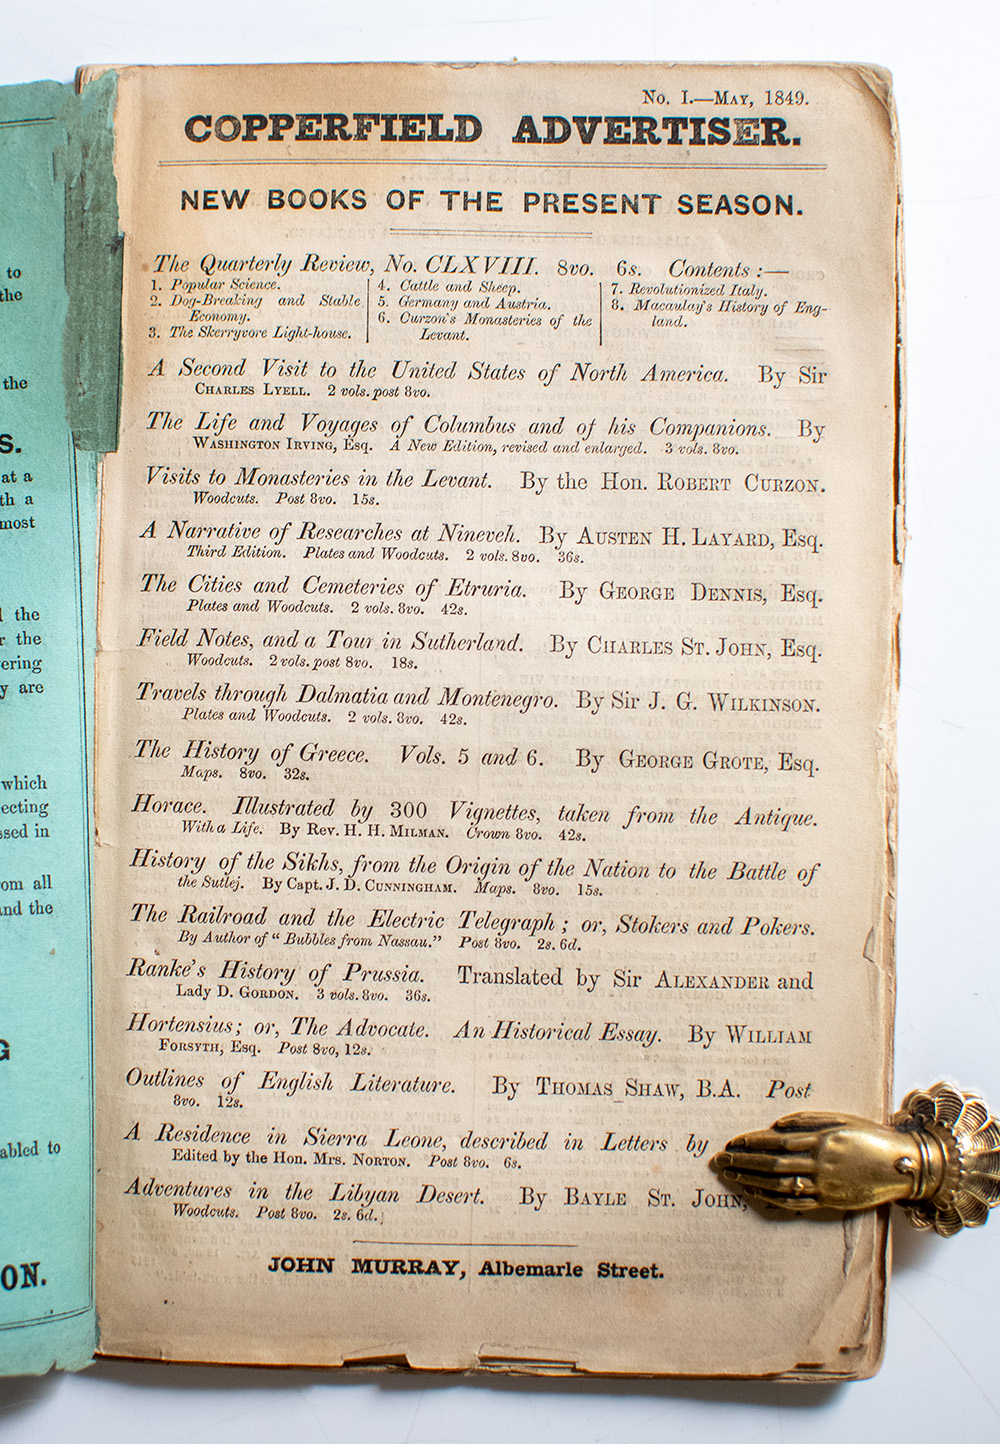 to
the
the
S.
at a
th a
most
the
r the
ering
y are
which
ecting
ssed in
om all
and the
G
abled to
ON.
No. I.—May, 1849.
COPPERFIELD ADVERTISER.
NEW BOOKS OF THE PRESENT SEASON.
The Quarterly Review, No. CLXVIII. 8vo. 6s. Contents :—
1. Popular Science.
2. Dog-Breaking and Stable
Economy.
3. The Skerryvore Light-house.
4. Cattle and Sheep.
5. Germany and Austria.
6. Curzon's Monasteries of the
Levant.
7. Revolutionized Italy.
8. Macaulay's History of Eng-
land.
A Second Visit to the United States of North America. By Sir
CHARLES LYELL. 2 vols. post 8vo.
The Life and Voyages of Columbus and of his Companions. By
WASHINGTON IRVING, Esq. A New Edition, revised and enlarged. 3 vols. 8vo.
Visits to Monasteries in the Levant. By the Hon. ROBERT CURZON.
Woodcuts. Post 8vo. 15s.
A Narrative of Researches at Nineveh. By AUSTEN H. LAYARD, Esq.
Third Edition. Plates and Woodcuts. 2 vols. 8vo. 36s.
The Cities and Cemeteries of Etruria. By GEORGE DENNIS, Esq.
Plates and Woodcuts. 2 vols. 8vo. 42s.
Field Notes, and a Tour in Sutherland. By CHARLES ST. JOHN, Esq.
Woodcuts. 2 vols. post 8vo. 18s.
Travels through Dalmatia and Montenegro. By Sir J. G. WILKINSON.
Plates and Woodcuts. 2 vols. 8vo. 42s.
The History of Greece. Vols. 5 and 6. By GEORGE GROTE, Esq.
Maps. 8vo. 32s.
Horace. Illustrated by 300 Vignettes, taken from the Antique.
With a Life. By Rev. H. H. MILMAN. Crown 8vo. 42s.
History of the Sikhs, from the Origin of the Nation to the Battle of
the Sutlej. By Capt. J. D. CUNNINGHAM. Maps. 8vo. 15s.
The Railroad and the Electric Telegraph ; or, Stokers and Pokers.
By Author of "Bubbles from Nassau." Post 8vo. 2s. 6d.
Ranke's History of Prussia. Translated by Sir ALEXANDER and
Lady D. GORDON. 3 vols. 8vo. 36s.
Hortensius; or, The Advocate. An Historical Essay. By WILLIAM
FORSYTH, Esq. Post 8vo, 12s.
Outlines of English Literature. By THOMAS SHAW, B.A. Post
8vo. 12s.
A Residence in Sierra Leone, described in Letters by
Edited by the Hon. Mrs. NORTON. Post 8vo. 6s.
Adventures in the Libyan Desert. By BAYLE ST. JOHN,
Woodcuts. Post 8vo. 2s. 6d.
JOHN MURRAY, Albemarle Street.